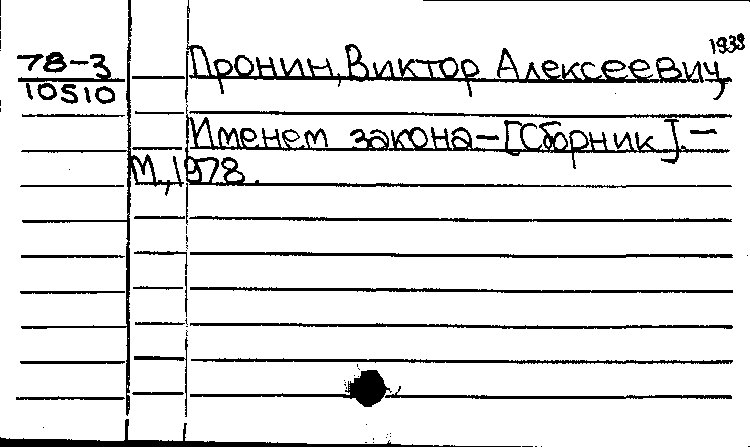 78-3
10510
Пронин, Виктор Алексеевич, 1938
Именем закона-[Сборник].-
М., 1978.